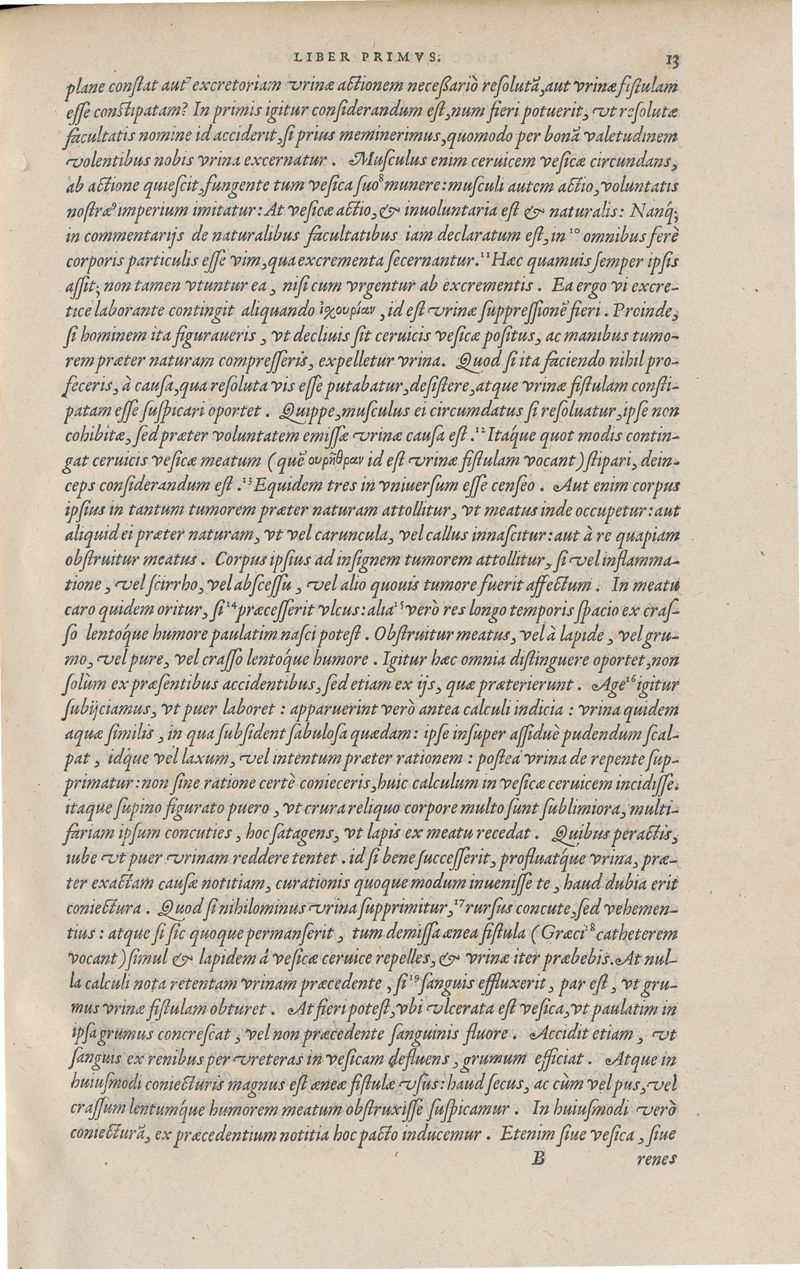 LIBER PRIMVS. 13
plane constat aut⁷ excretoriam vrinæ actionem necessariò resolutã, aut vrinæ fistulam
esse constipatam? In primis igitur considerandum est, num fieri potuerit, vt resolutæ
facultatis nomine id acciderit, si prius meminerimus, quomodo per bonã valetudinem
volentibus nobis vrina excernatur. Musculus enim ceruicem vesicæ circundans,
ab actione quiescit, fungente tum vesica suo⁸ munere: musculi autem actio, voluntatis
nostræ⁹ imperium imitatur: At vesicæ actio, & inuoluntaria est & naturalis: Nanq;
in commentarijs de naturalibus facultatibus iam declaratum est, in¹⁰ omnibus ferè
corporis particulis esse vim, qua excrementa secernantur.¹¹ Hæc quamuis semper ipsis
assit; non tamen vtuntur ea, nisi cum vrgentur ab excrementis. Ea ergo vi excre-
tice laborante contingit aliquando ἰχουρίαν, id est vrinæ suppressionẽ fieri. Proinde,
si hominem ita figuraueris, vt decliuis sit ceruicis vesicæ positus, ac manibus tumo-
rem præter naturam compresseris, expelletur vrina. Quod si ita faciendo nihil pro-
feceris, à causa, qua resoluta vis esse putabatur, desistere, atque vrinæ fistulam consti-
patam esse suspicari oportet. Quippe, musculus ei circumdatus si resoluatur, ipse non
cohibitæ, sed præter voluntatem emissæ vrinæ causa est.¹² Itaque quot modis contin-
gat ceruicis vesicæ meatum (quẽ ουρήθραν id est vrinæ fistulam vocant) stipari, dein-
ceps considerandum est.¹³ Equidem tres in vniuersum esse censeo. Aut enim corpus
ipsius in tantum tumorem præter naturam attollitur, vt meatus inde occupetur: aut
aliquid ei præter naturam, vt vel caruncula, vel callus innascitur: aut à re quapiam
obstruitur meatus. Corpus ipsius ad insignem tumorem attollitur, si vel inflamma-
tione, vel scirrho, vel abscessu, vel alio quouis tumore fuerit affectum. In meatu
caro quidem oritur, si¹⁴ præcesserit vlcus: alia¹⁵ verò res longo temporis spacio ex cras-
so lentoque humore paulatim nasci potest. Obstruitur meatus, vel à lapide, vel gru-
mo, vel pure, vel crasso lentoque humore. Igitur hæc omnia distinguere oportet, non
solùm ex præsentibus accidentibus, sed etiam ex ijs, quæ præterierunt. Age¹⁶ igitur
subijciamus, vt puer laboret: apparuerint verò antea calculi indicia: vrina quidem
aquæ similis, in qua subsident sabulosa quædam: ipse insuper assiduè pudendum scal-
pat, idque vel laxum, vel intentum præter rationem: postea vrina de repente sup-
primatur: non sine ratione certè conieceris, huic calculum in vesicæ ceruicem incidisse.
itaque supino figurato puero, vt crura reliquo corpore multo sunt sublimiora, multi-
fariam ipsum concuties, hoc satagens, vt lapis ex meatu recedat. Quibus peractis,
iube vt puer vrinam reddere tentet. id si bene successerit, profluatque vrina, præ-
ter exactam causæ notitiam, curationis quoque modum inuenisse te, haud dubia erit
coniectura. Quod si nihilominus vrina supprimitur,¹⁷ rursus concute, sed vehemen-
tius: atque si sic quoque permanserit, tum demissa ænea fistula (Græci¹⁸ catheterem
vocant) simul & lapidem á vesicæ ceruice repelles, & vrinæ iter præbebis. At nul-
la calculi nota retentam vrinam præcedente, si¹⁹ sanguis effluxerit, par est, vt gru-
mus vrinæ fistulam obturet. At fieri potest, vbi vlcerata est vesica, vt paulatim in
ipsa grumus concrescat, vel non præcedente sanguinis fluore. Accidit etiam, vt
sanguis ex renibus per vreteras in vesicam defluens, grumum efficiat. Atque in
huiusmodi coniecturis magnus est æneæ fistulæ vsus: haud secus, ac cùm vel pus, vel
crassum lentumque humorem meatum obstruxisse suspicamur. In huiusmodi verò
coniecturã, ex præcedentium notitia hoc pacto inducemur. Etenim siue vesica, siue
B renes